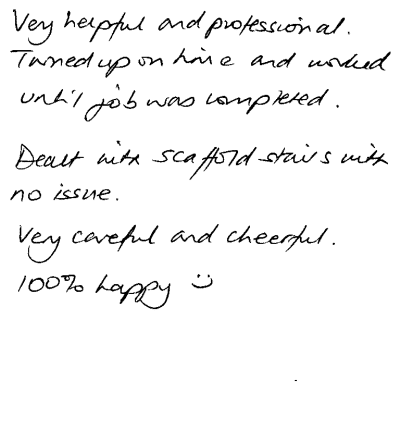 Very helpful and professional.
Turned up on time and worked
until job was completed.
Dealt with scaffold stairs with
no issue.
Very careful and cheerful.
100% happy :)